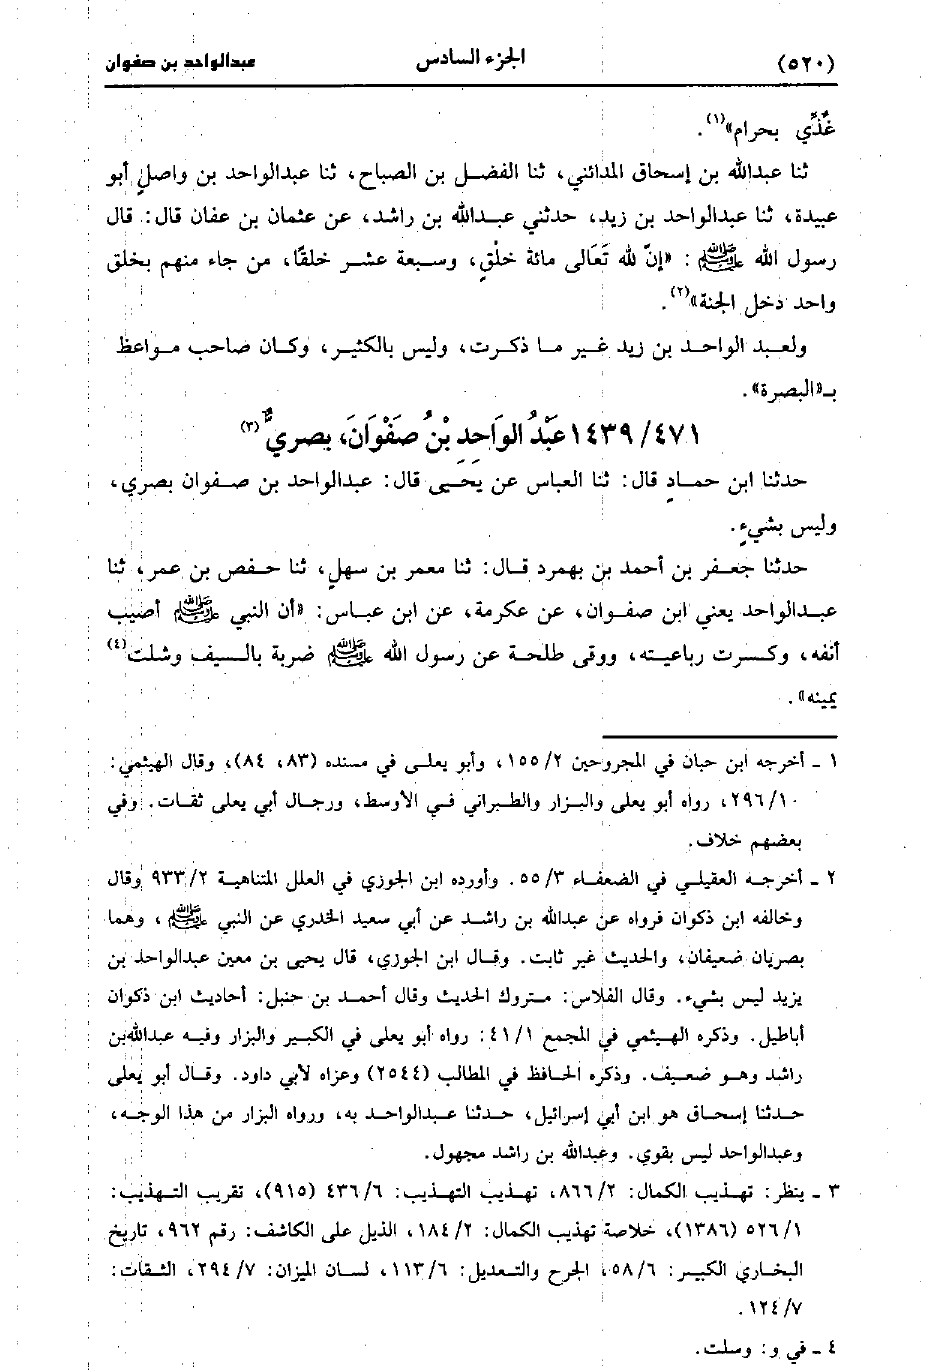 (٥٢٠) الجزء السادس عبدالواحد بن صفوان
غُذِّي بحرام»(١).
ثنا عبدالله بن إسحاق المدائني، ثنا الفضل بن الصباح، ثنا عبدالواحد بن واصلٍ أبو
عبيدة، ثنا عبدالواحد بن زيد، حدثني عبدالله بن راشد، عن عثمان بن عفان قال: قال
رسول الله ﷺ : «إنّ لله تَعَالى مائة خلْقٍ، وسبعة عشر خلقًا، من جاء منهم بخلق
واحد دخل الجنة»(٢).
ولعبد الواحد بن زيد غير ما ذكرت، وليس بالكثير، وكان صاحب مواعظ
بـ«البصرة».
١٤٣٩/٤٧١ عَبْدُ الوَاحِدِ بْنُ صَفْوَانَ، بصري(٣)
حدثنا ابن حمادٍ قال: ثنا العباس عن يحيى قال: عبدالواحد بن صفوان بصري،
وليس بشيءٍ.
حدثنا جعفر بن أحمد بن بهمرد قال: ثنا معمر بن سهلٍ، ثنا حفص بن عمر، ثنا
عبدالواحد يعني ابن صفوان، عن عكرمة، عن ابن عباس: «أن النبي ﷺ أصيب
أنفه، وكسرت رباعيته، ووقى طلحة عن رسول الله ﷺ ضربة بالسيف وشلت(٤)
يمينه».
١ ـ أخرجه ابن حبان في المجروحين ١٥٥/٢، وأبو يعلى في مسنده (٨٣، ٨٤)، وقال الهيثمي:
٢٩٦/١٠، رواه أبو يعلى والبزار والطبراني في الأوسط، ورجال أبي يعلى ثقات. وفي
بعضهم خلاف.
٢ ـ أخرجه العقيلي في الضعفاء ٥٥/٣. وأورده ابن الجوزي في العلل المتناهية ٩٣٣/٢ وقال
وخالفه ابن ذكوان فرواه عن عبدالله بن راشد عن أبي سعيد الخدري عن النبي ﷺ ، وهما
بصريان ضعيفان، والحديث غير ثابت. وقال ابن الجوزي، قال يحيى بن معين عبدالواحد بن
يزيد ليس بشيء. وقال الفلاس: متروك الحديث وقال أحمد بن حنبل: أحاديث ابن ذكوان
أباطيل. وذكره الهيثمي في المجمع ٤١/١: رواه أبو يعلى في الكبير والبزار وفيه عبدالله‌بن
راشد وهو ضعيف. وذكره الحافظ في المطالب (٢٥٤٤) وعزاه لأبي داود. وقال أبو يعلى
حدثنا إسحاق هو ابن أبي إسرائيل، حدثنا عبدالواحد به، ورواه البزار من هذا الوجه،
وعبدالواحد ليس بقوي. وعبدالله بن راشد مجهول.
٣ ـ ينظر: تهذيب الكمال: ٨٦٦/٢، تهذيب التهذيب: ٤٣٦/٦ (٩١٥)، تقريب التهذيب:
٥٢٦/١ (١٣٨٦)، خلاصة تهذيب الكمال: ١٨٤/٢، الذيل على الكاشف: رقم ٩٦٢، تاريخ
البخاري الكبير: ٥٨/٦، الجرح والتعديل: ١١٣/٦، لسان الميزان: ٢٩٤/٧، الثقات:
١٢٤/٧.
٤ ـ في و: وسلت.